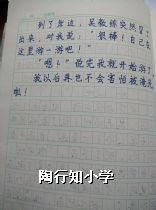 到了岸边，吴教练突然冒了
出来，对我说："很棒！自己在
这里游一游吧！"
"嗯！"说完我就开始游了
故以后再也不会害怕被淹死
啦！
陶行知小学